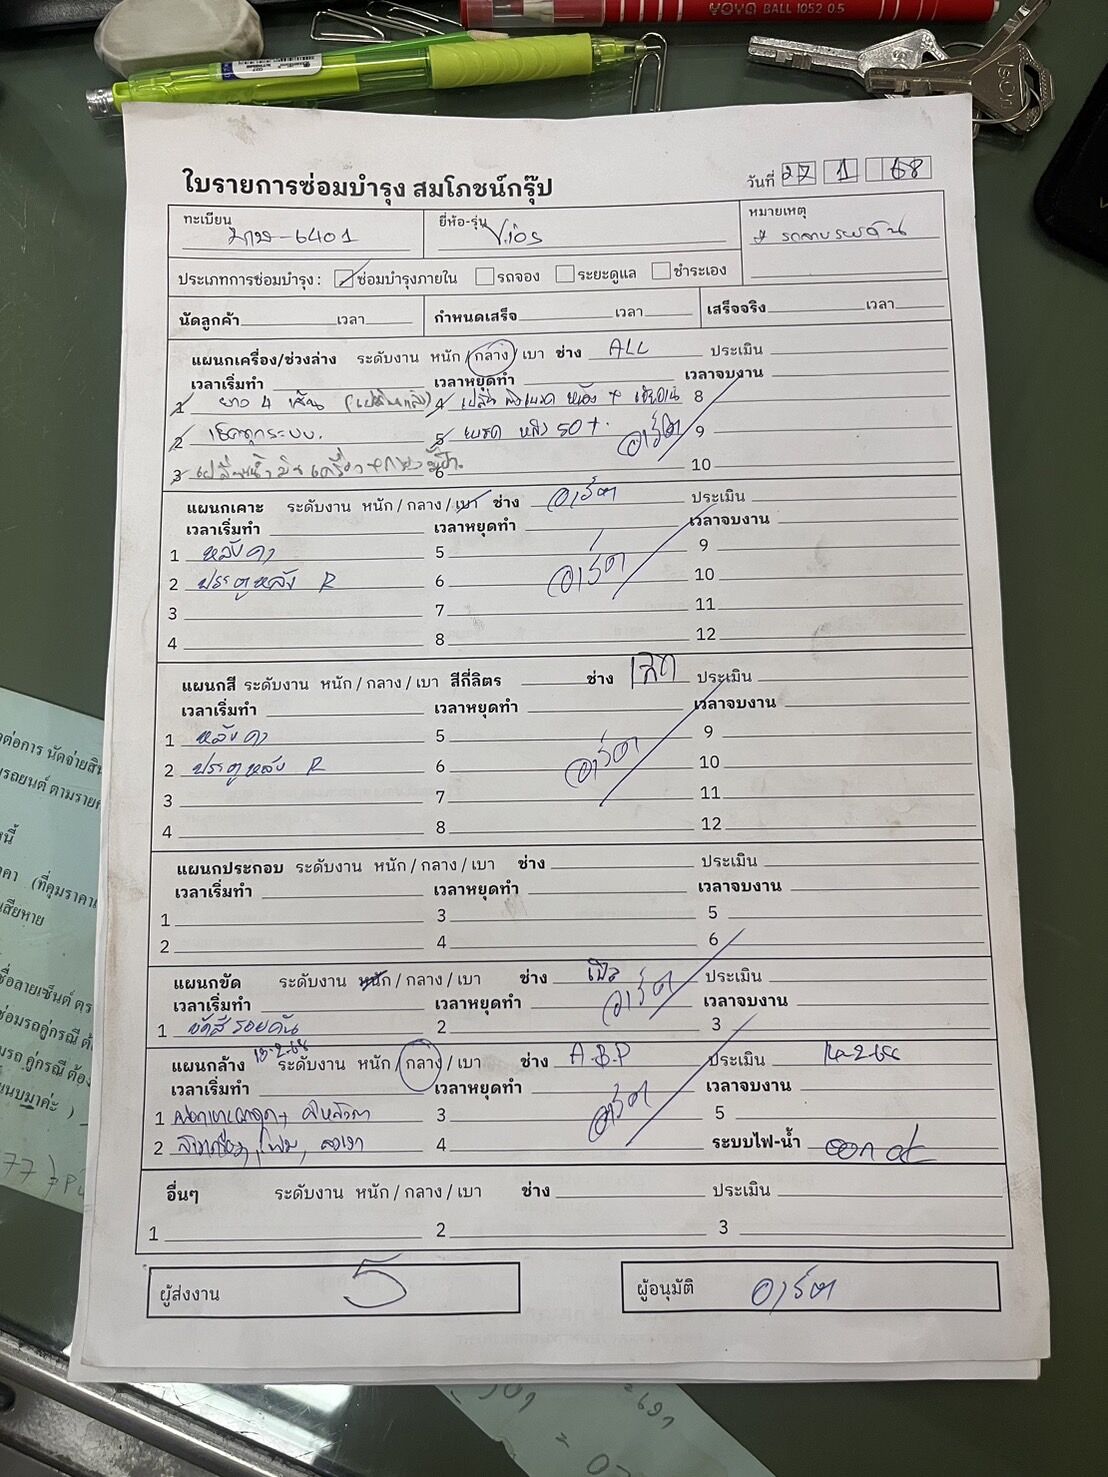 YOYA BALL 1052 0.5
ใบรายการซ่อมบำรุง สมโภชน์กรุ๊ป
วันที่ 27 1 68
ทะเบียน 6401
ยี่ห้อ-รุ่น Vios
หมายเหตุ
ประเภทการซ่อมบำรุง : ซ่อมบำรุงภายใน รถจอง ระยะดูแล ชำระเอง
นัดลูกค้า เวลา กำหนดเสร็จ เวลา เสร็จจริง เวลา
แผนกเครื่อง/ช่วงล่าง ระดับงาน หนัก / กลาง / เบา ช่าง ALL ประเมิน
เวลาเริ่มทำ เวลาหยุดทำ เวลาจบงาน
1 ยาง 4 เส้น 4 8
2 เช็คทุกระบบ. 5 เบรค หลัง 50%. อาร์ต 9
3 เปลี่ยนน้ำมันเครื่อง 6 10
แผนกเคาะ ระดับงาน หนัก / กลาง / เบา ช่าง อาร์ต ประเมิน
เวลาเริ่มทำ เวลาหยุดทำ เวลาจบงาน
1 หลังคา 5 9
2 ประตูหลัง R 6 อาร์ต 10
3 7 11
4 8 12
แผนกสี ระดับงาน หนัก / กลาง / เบา สีกี่ลิตร ช่าง ประเมิน
เวลาเริ่มทำ เวลาหยุดทำ เวลาจบงาน
1 หลังคา 5 9
2 ประตูหลัง R 6 อาร์ต 10
3 7 11
4 8 12
แผนกประกอบ ระดับงาน หนัก / กลาง / เบา ช่าง ประเมิน
เวลาเริ่มทำ เวลาหยุดทำ เวลาจบงาน
1 3 5
2 4 6
แผนกขัด ระดับงาน หนัก / กลาง / เบา ช่าง ประเมิน
เวลาเริ่มทำ เวลาหยุดทำ อาร์ต เวลาจบงาน
1 ขัดสีรอบคัน 2 3
แผนกล้าง ระดับงาน หนัก / กลาง / เบา ช่าง A.B.P ประเมิน
เวลาเริ่มทำ เวลาหยุดทำ เวลาจบงาน
1 3 อาร์ต 5
2 4 ระบบไฟ-น้ำ
อื่นๆ ระดับงาน หนัก / กลาง / เบา ช่าง ประเมิน
1 2 3
ผู้ส่งงาน 5 ผู้อนุมัติ อาร์ต